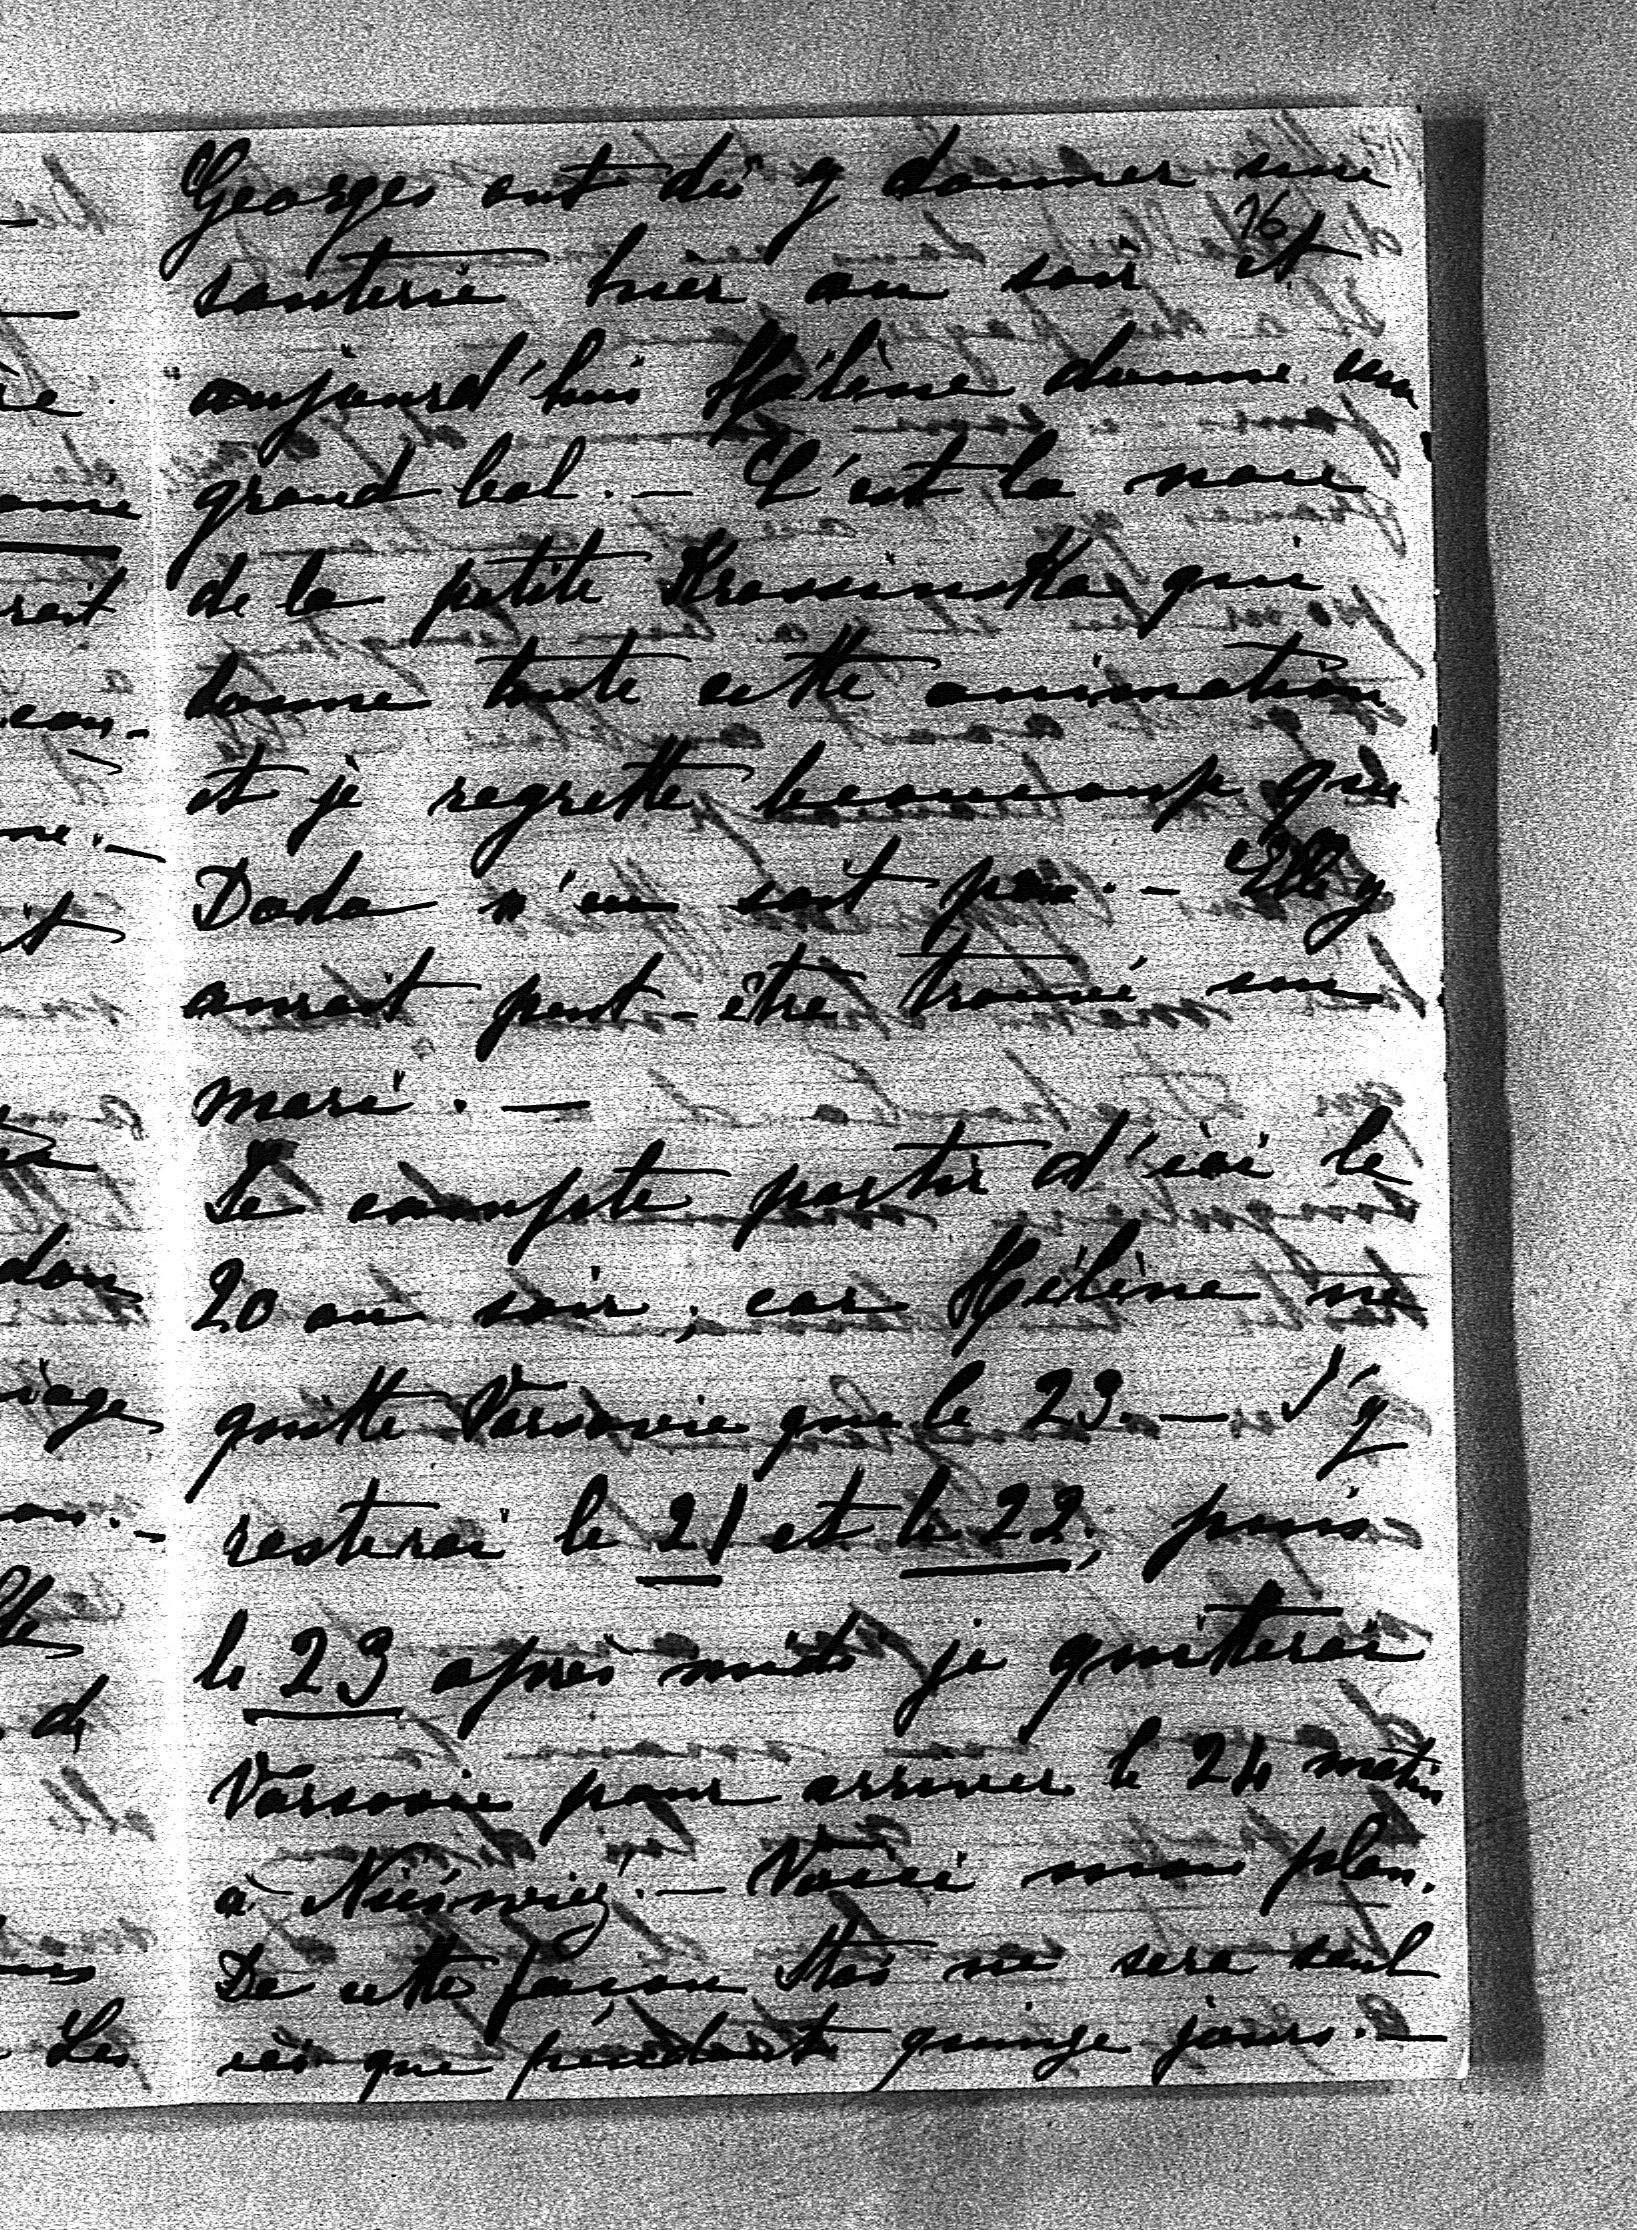 Georges ont dû y donner une
16
sauterie hier au soir et
aujourd'hui Hélène donne un
grand bal. — C'est la noce
de la petite Krasinska qui
donne toute cette animation
et je regrette beaucoup que
Dodo n'en soit pas. — Elle y
aurait peut-être trouvé un
mari. —
Je compte partir d'ici le
20 au soir, car Hélène ne
quitte Varsovie que le 23. — J'y
resterai le 21 et le 22, puis
le 23 après midi je quitterai
Varsovie pour arriver le 24 matin
à Nieśwież. — Voici mon plan.
De cette façon Staś ne sera seul
ici que pendant quinze jours. —